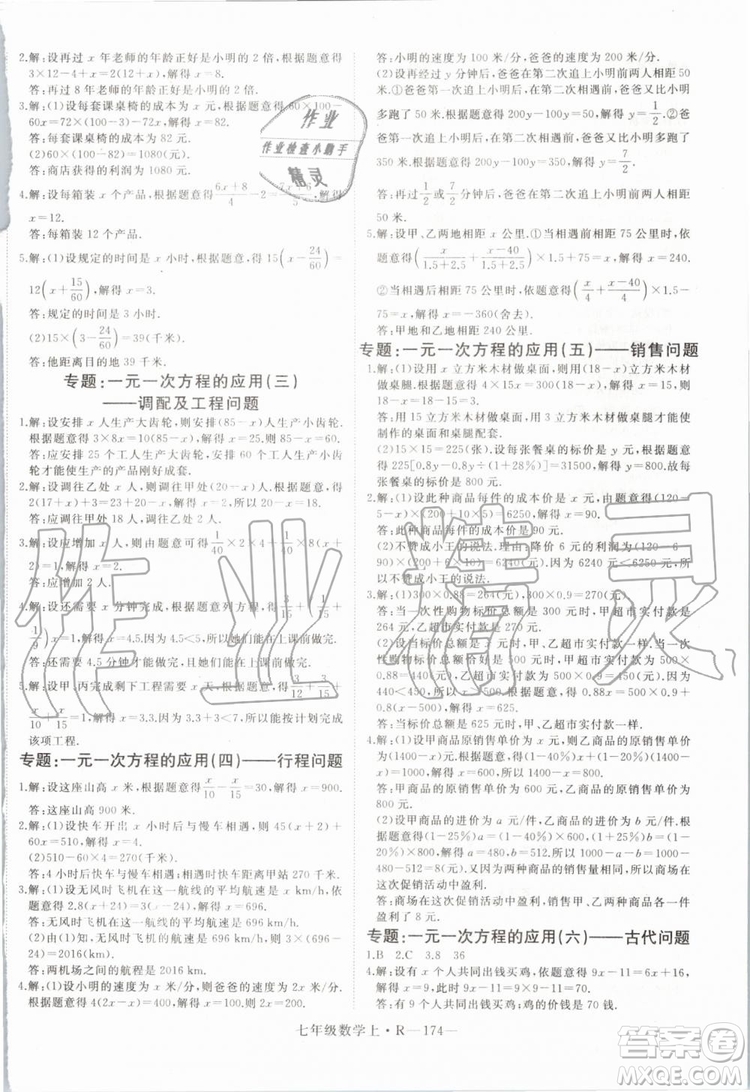 2.解:设再过 x 年老师的年龄正好是小明的 2 倍,根据题意得
3×12-4+x=2(12+x),解得 x=8.
答:再过 8 年老师的年龄正好是小明的 2 倍.
3.解:(1)设每套课桌椅的成本为 x 元,根据题意得 60×100-
60x=72×(100-3)-72x,解得 x=82.
答:每套课桌椅的成本为 82 元.
(2)60×(100-82)=1080(元).
答:商店获得的利润为 1080 元.
4.解:设每箱装 x 个产品,根据题意得
x=12.
答:每箱装 12 个产品.
5.解:(1)设规定的时间是 x 小时,根据题意得 15(x-24/60)=
12(x+15/60),解得 x=3.
答:规定的时间是 3 小时.
(2)15×(3-24/60)=39(千米).
答:他距离目的地 39 千米.
专题:一元一次方程的应用(三)
——调配及工程问题
1.解:设安排 x 人生产大齿轮,则安排(85-x)人生产小齿轮.
根据题意得 3×8x=10(85-x)×2,解得 x=25.
答:应安排 25 个工人生产大齿轮,安排 60 个工人生产小齿
轮才能使生产的产品刚好成套.
2.解:设应调往甲处 x 人,则调往乙处(20-x)人.根据题意得
27+x=2(17+20-x),解得 x=18.
答:应调往甲处 18 人,调往乙处 2 人.
3.解:设应增加 x 人,则由题意可得 1/40×2×4+1/40×8×
解得 x=2.
答:应增加 2 人.
4.解:设 x 分钟完成,根据题意列方程,
1/9)x=1,解得 x=4.5.因为 4.5<5,所以她们能在上课前做完.
答:需要 4.5 分钟才能做完,且她们能在上课前做完.
5.解:设甲、丙完成剩下工程需要 x 天,根据题意得 3/10+3/12+
x/10+x/15=1,解得 x=3.3.因为 3.3+3<7,所以能按计划完成
该项工程.
专题:一元一次方程的应用(四)——行程问题
1.解:设这座山高 x 米,根据题意得 x/10-x/15=30,解得 x=900.
答:这座山高 900 米.
2.解:(1)设快车开出 x 小时后与慢车相遇,根据题意得 45(x+
2)+60x=510,解得 x=4.
答:4 小时后快车与慢车相遇.
(2)510-60×4=270(千米).
答:4 小时后快车与慢车相遇;相遇时快车距离甲站 270 千米.
3.解:(1)设无风时飞机在这一航线的平均航速为 x km/h,根据
题意得 2.8(x+24)=3(x-24),解得 x=696.
答:无风时飞机在这一航线的平均航速为 696 km/h.
(2)由(1)知,无风时飞机的航速是 696 km/h,则 3×(696-24)
=2016(km).
答:两机场之间的航程是 2016 km.
4.解:(1)设小明的速度为 x 米/分,爸爸的速度为 2x 米/分,根
据题意得 4(2x-x)=400,解得 x=100.所以 2x=200.
答:小明的速度为 100 米/分,爸爸的速度为 200 米/分.
(2)设再过 y 分钟后,爸爸在第二次追上小明前两人相距 50
米.①爸爸第一次追上小明后,在第二次追上小明前爸爸又比小明
多跑了 50 米,根据题意得 200y-100y=50,解得 y=1/2.
②爸爸第一次追上小明后,在第二次追上小明前爸爸又比小
明多跑了 350 米,根据题意得 200y-100y=350,解得 y=7/2.
答:再过 1/2 或 7/2 分钟后,爸爸在第二次追上小明前两人相距
50 米.
5.解:设甲、乙两地相距 x 千米.①当相遇前相距 75 公里时,根
据题意得(x/(1.5+2.5)+(x-40)/(1.5+2.5))×1.5+75=x,解得 x=240.
②当相遇后相距 75 公里时,根据题意得(x/4+(x-40)/4)×1.5=
x+75,解得 x=-360(舍去).
答:甲地和乙地相距 240 千米.
专题:一元一次方程的应用(五)——销售问题
1.解:(1)设用 x 立方米木材做桌面,则用(18-x)立方米木材做
桌腿,根据题意得 4×15x=300(18-x),解得 x=15.
答:用 15 立方米木材做桌面,用 3 立方米木材做桌腿才能使
制作的桌面和桌腿配套.
(2)15×15=225(张).设每张餐桌的标价是 y 元,根据题意
得 225[0.8y-0.8y÷(1+28%)]=31500,解得 y=800.
答:每张餐桌的标价是 800 元.
2.解:(1)设此种商品每件的成本价是 x 元,根据题意得(100-
x)×200+(200+10×5)×(100-5-x)=6250-2000,解得 x=90.
答:此种商品每件的成本价是 90 元.
(2)不赞成小王的说法.理由:降价 6 元的利润为(100-6-
90)×(200+10×6)=1040(元).因为 6240 元<6250 元,所以不赞成小王的说法.
3.解:(1)300×0.88=264(元),200+
答:当一次性购物标价总额是 300 元时,甲超市实付款
264 元,乙超市实付款 270 元.
(2)设当标价总额是 x 元时,甲、乙超市实付款一样.当一次
性购物标价总额是 500 元时,甲超市实付款
440<450,所以 x>500.根据题意得 0.88x=500×0.9+0.8(x-
500),解得 x=625.
答:当标价总额是 625 元时,甲、乙超市实付款一样.
4.解:(1)设甲商品原销售单价为 x 元,则乙商品的原销售单价
为(1400-x)元,根据题意得(1-40%)x+(1-20%)(1400-
x)=1000,解得 x=600.所以 1400-x=800.
答:甲商品原销售单价为 600 元,乙商品的原销售单价为
800 元.
(2)设甲商品的进价为 a 元/件,乙商品的进价为 b 元/件.
根据题意得(1-25%)a=(1-40%)×600,(1+25%)b=(1-
20%)×800,解得 a=480,b=512.所以 1000-a-b=1000-
480-512=8.因为 8>0,所以商场在这次促销活动中盈利,所
以在这次促销活动中盈利.
答:商场在这次促销活动中盈利,甲、乙两种商品各销售一件
盈利了 8 元.
专题:一元一次方程的应用(六)——古代问题
1.B 2.C 3.8 36
4.解:设有 x 个人共同出钱买鸡,根据题意得 9x-11=6x+16,
解得 x=9.所以 9x-11=70.
答:有 9 个人共同出钱买鸡;鸡的价钱是 70 钱.
七年级数学上·R—174—
作业
作业检查小助手
精灵
作业精灵
答案圈
MXQE.COM